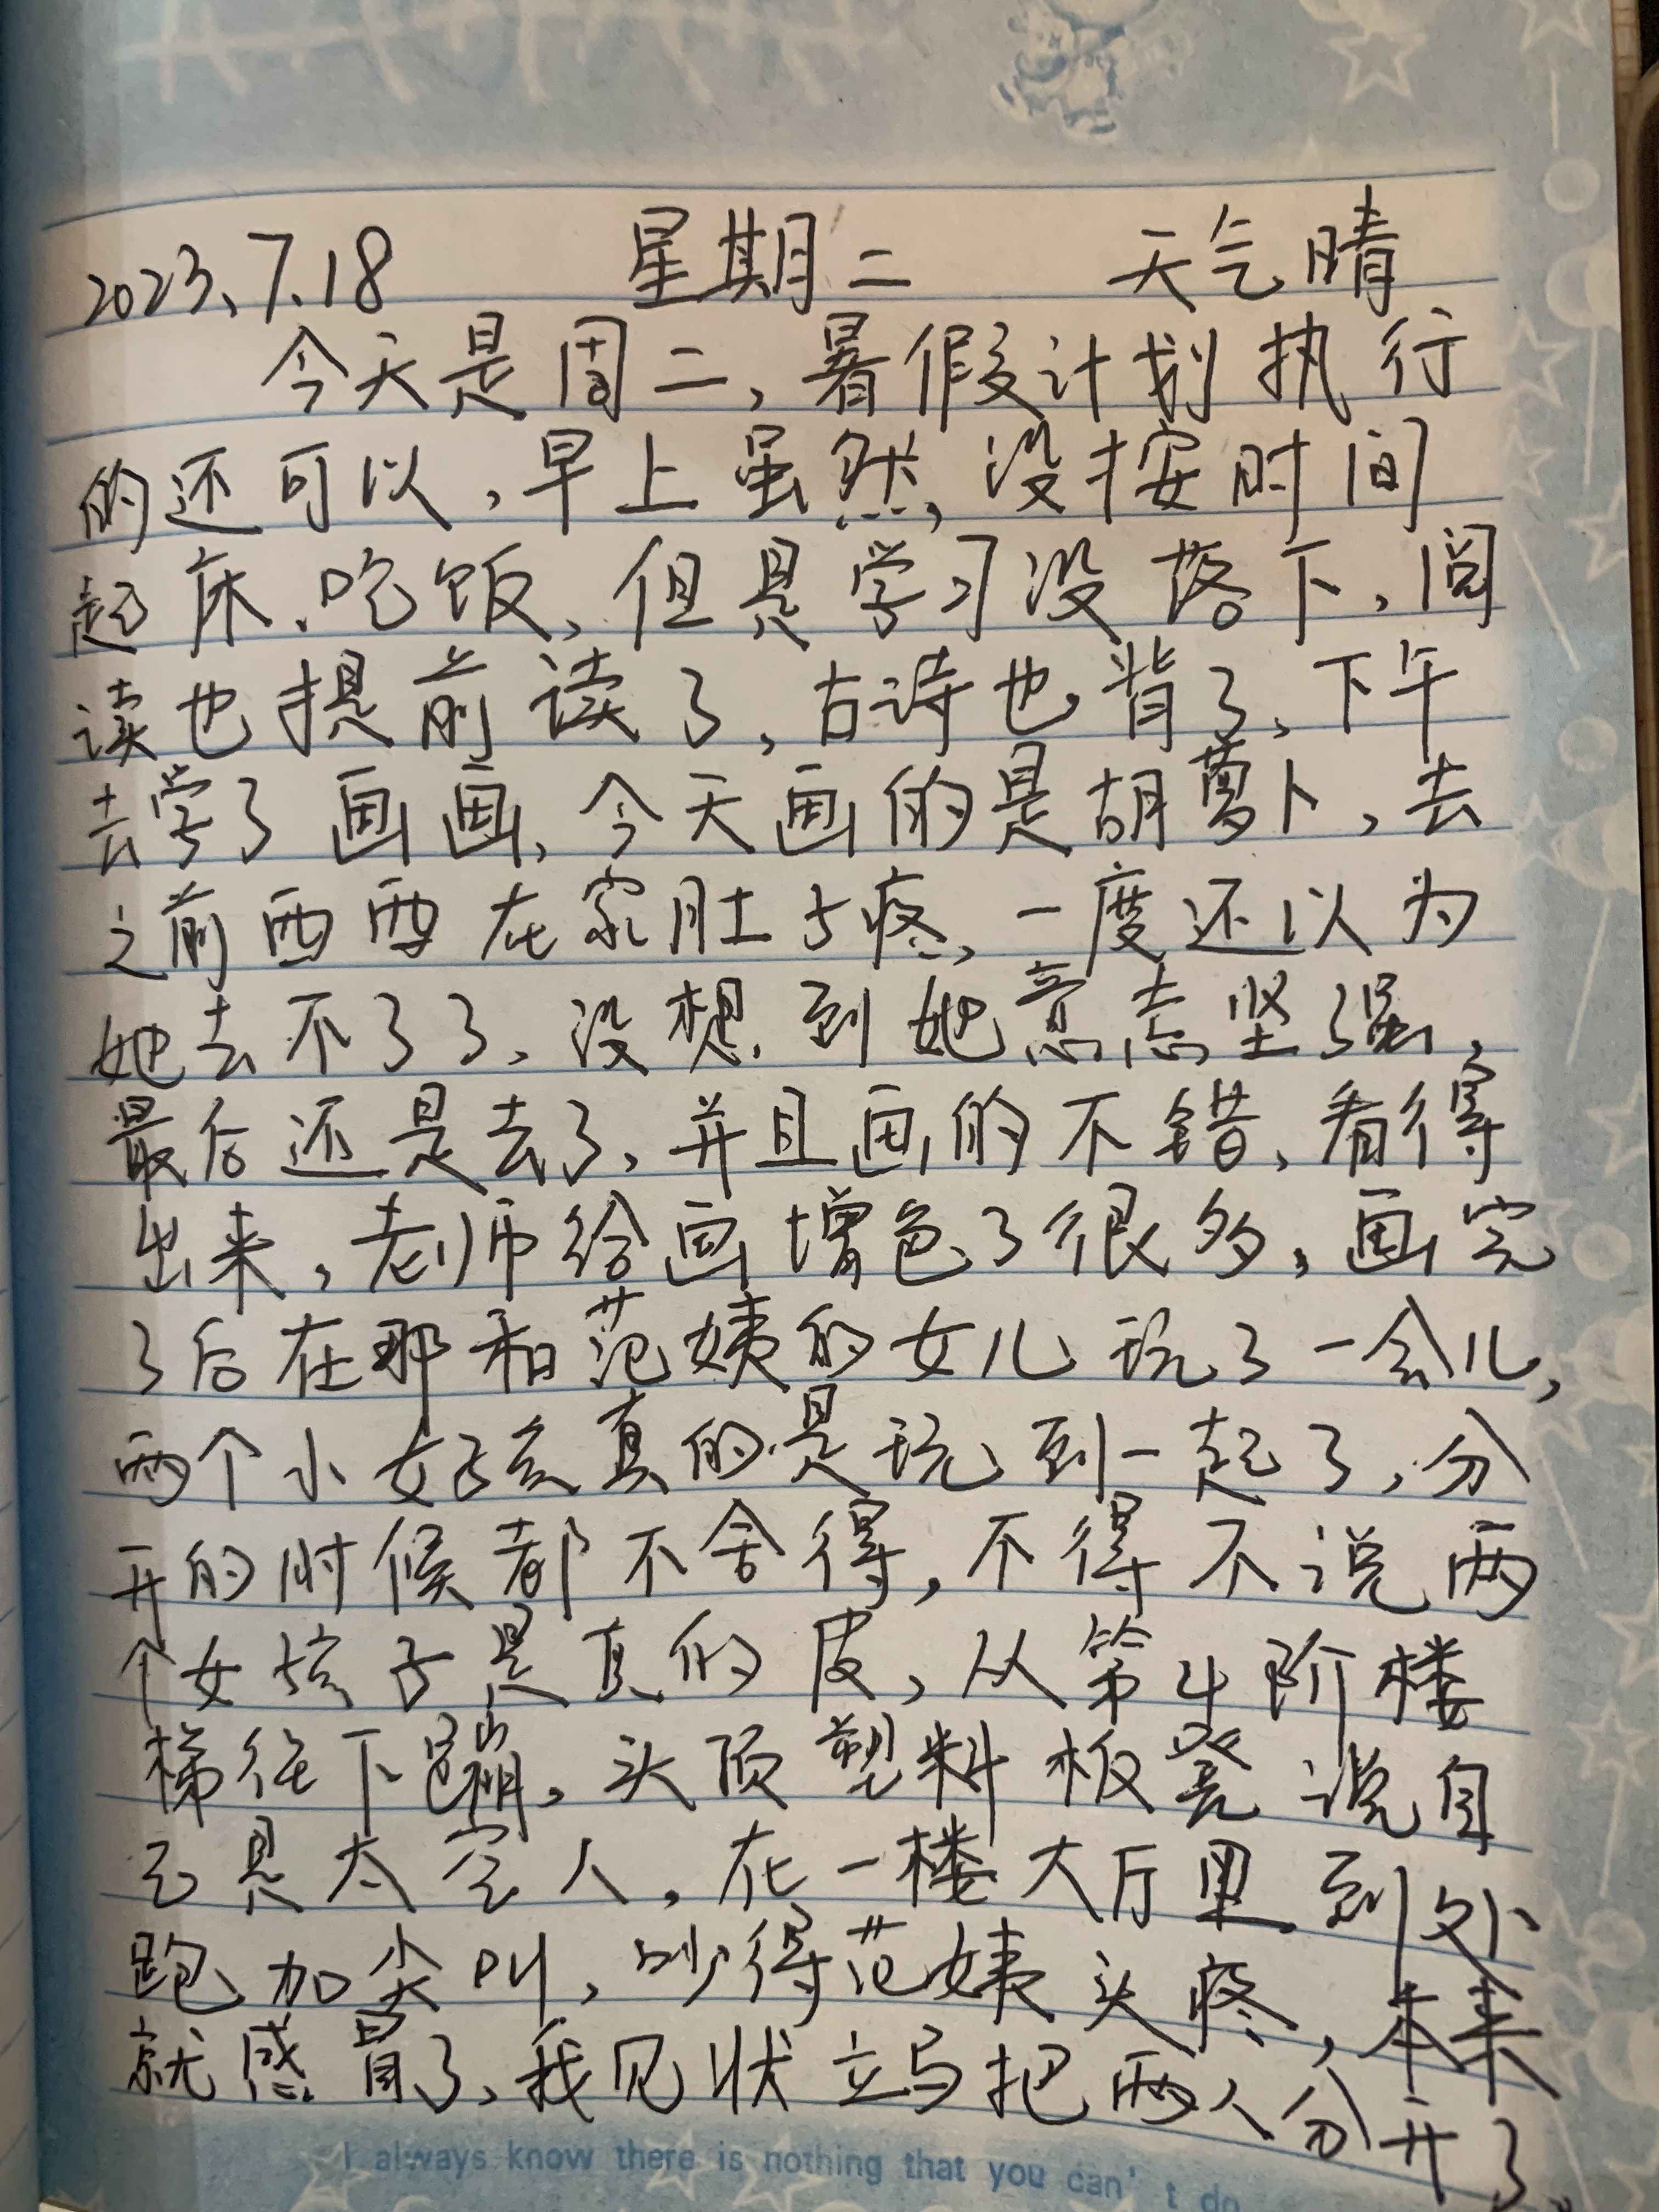 2023、7.18 星期二 天气晴
今天是周二，暑假计划执行
的还可以，早上虽然，没按时间
起床、吃饭，但是学习没落下，阅
读也提前读了，古诗也背了，下午
去学了画画，今天画的是胡萝卜，去
之前西西在家肚子疼，一度还以为
她去不了了、没想到她意志坚强，
最后还是去了，并且画的不错，看得
出来，老师给画增色了很多，画完
了后在那和范姨的女儿玩了一会儿，
两个小女孩真的是玩到一起了，分
开的时候都不舍得，不得不说两
个女孩子是真的皮，从第4阶楼
梯往下蹦，头顶塑料板凳说自
己是太空人，在一楼大厅里到处
跑加尖叫，吵得范姨头疼，本来
就感冒了，我见状立马把两人分开了
I always know there is nothing that you can't do